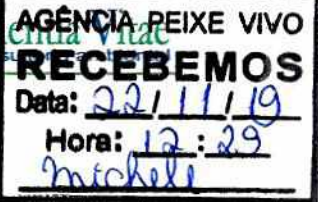 AGÊNCIA PEIXE VIVO
RECEBEMOS
Data: 22/11/19
Hora: 12:29
Michell